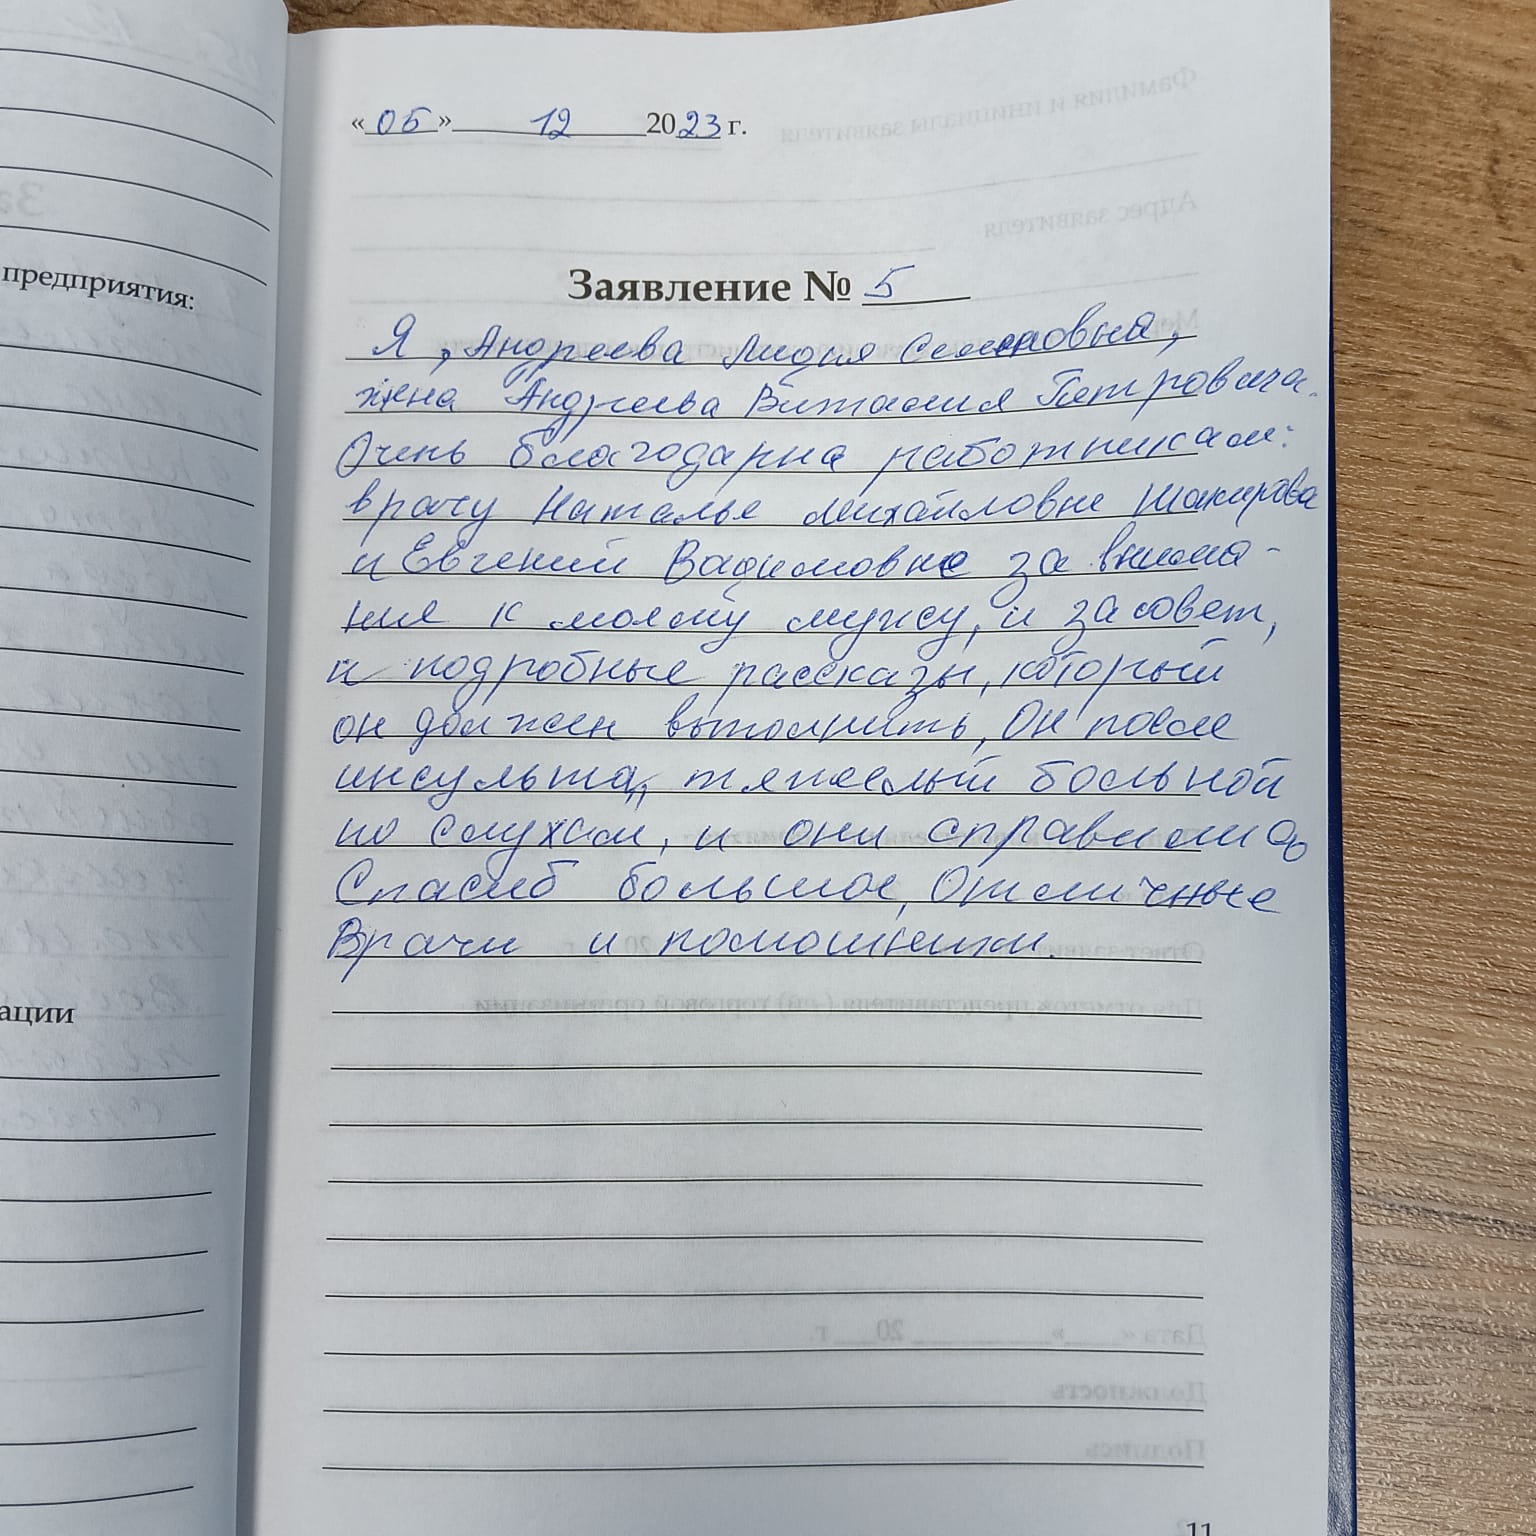 «05» 12 2023 г.
Заявление № 5
Я, Андреева Лидия Семеновна,
жена Андреева Виталия Петровича.
Очень благодарна работникам:
врачу Наталье Михайловне Шакирова
и Евгении Вадимовне за внима-
ние к моему мужу, и за совет,
и подробные рассказы, который
он должен выполнить, Он после
инсульта, тяжелый больной
по слухам, и они справились
Спасиб большое, Отличные
Врачи и помошники.
предприятия:
ации
11